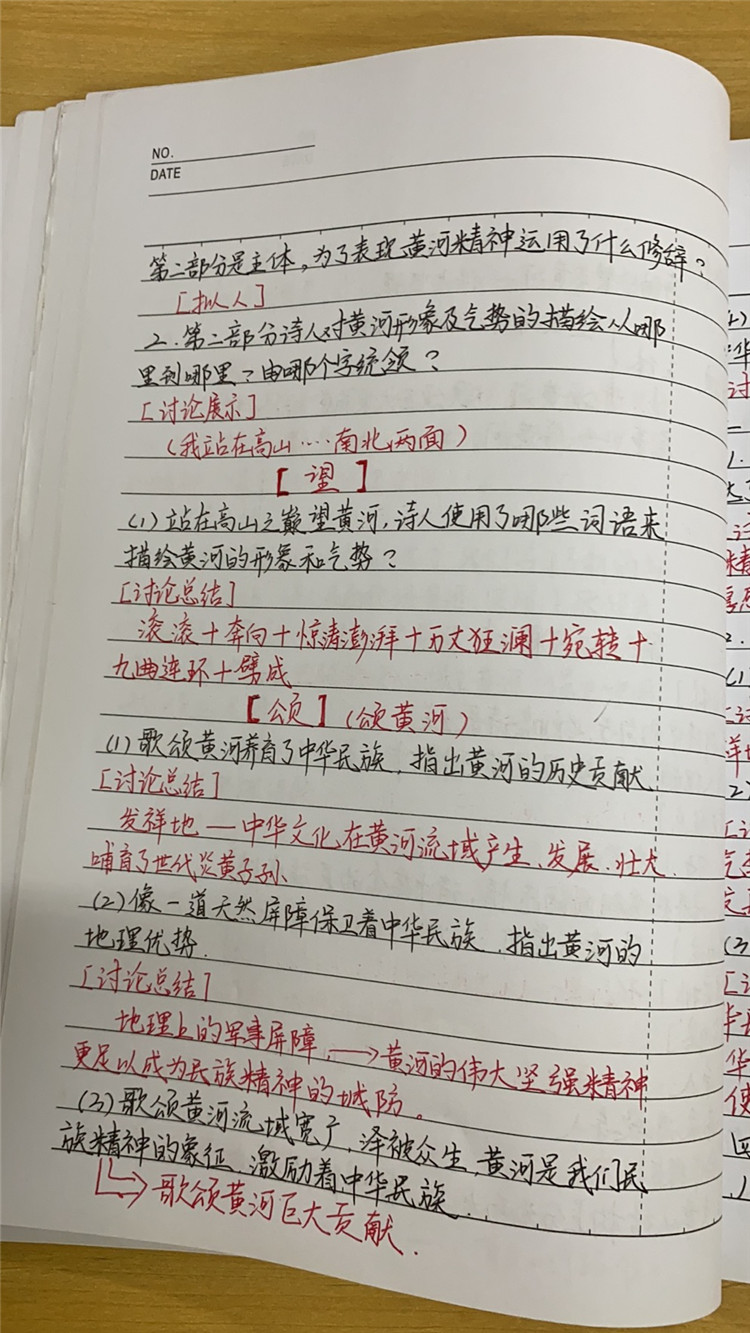 NO.
DATE
第二部分是主体,为了表现黄河精神运用了什么修辞?
[拟人]
2.第二部分诗人对黄河形象及气势的描绘从哪
里到哪里?由哪个字统领?
[讨论展示]
(我站在高山……南北两面)
【望】
(1)站在高山之巅望黄河,诗人使用了哪些词语来
描绘黄河的形象和气势?
[讨论总结]
滚滚+奔向+惊涛澎湃+万丈狂澜+宛转+
九曲连环+劈成
【颂】(颂黄河)
(1)歌颂黄河养育了中华民族,指出黄河的历史贡献.
[讨论总结]
发祥地—中华文化在黄河流域产生、发展、壮大.
哺育了世代炎黄子孙.
(2)像一道天然屏障保卫着中华民族,指出黄河的
地理优势.
[讨论总结]
地理上的军事屏障,→黄河的伟大坚强精神
更足以成为民族精神的城防。
(3)歌颂黄河流域宽广,泽被众生,黄河是我们民
族精神的象征,激励着中华民族.
↳歌颂黄河巨大贡献.